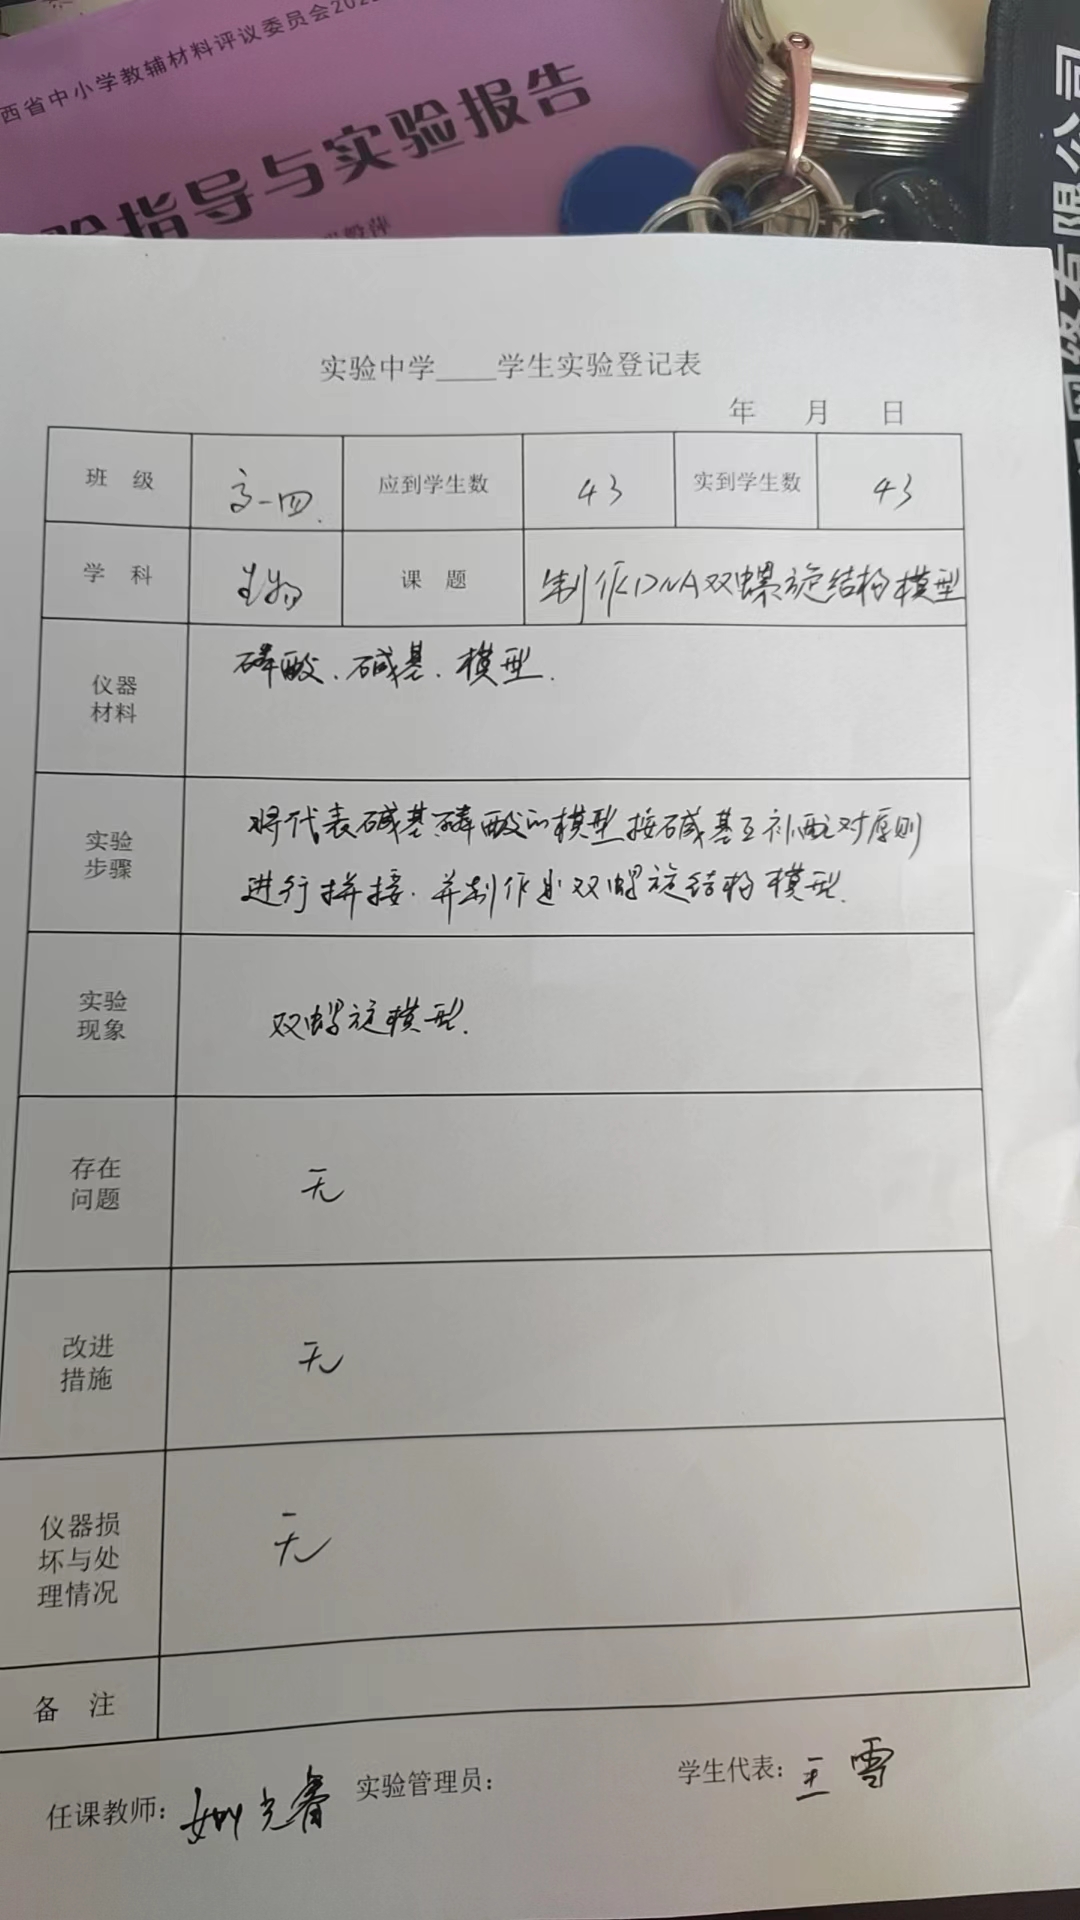 西省中小学教辅材料评议委员会202
验指导与实验报告
有限公司
实验中学____学生实验登记表
年 月 日
班 级 高一四. 应到学生数 43 实到学生数 43
学 科 生物 课 题 制作DNA双螺旋结构模型
仪器
材料
磷酸、碱基、模型.
实验
步骤
将代表碱基磷酸的模型按碱基互补配对原则
进行拼接.并制作出双螺旋结构模型.
实验
现象
双螺旋模型.
存在
问题
无
改进
措施
无
仪器损
坏与处
理情况
无
备 注
任课教师: 实验管理员: 学生代表: 王雪